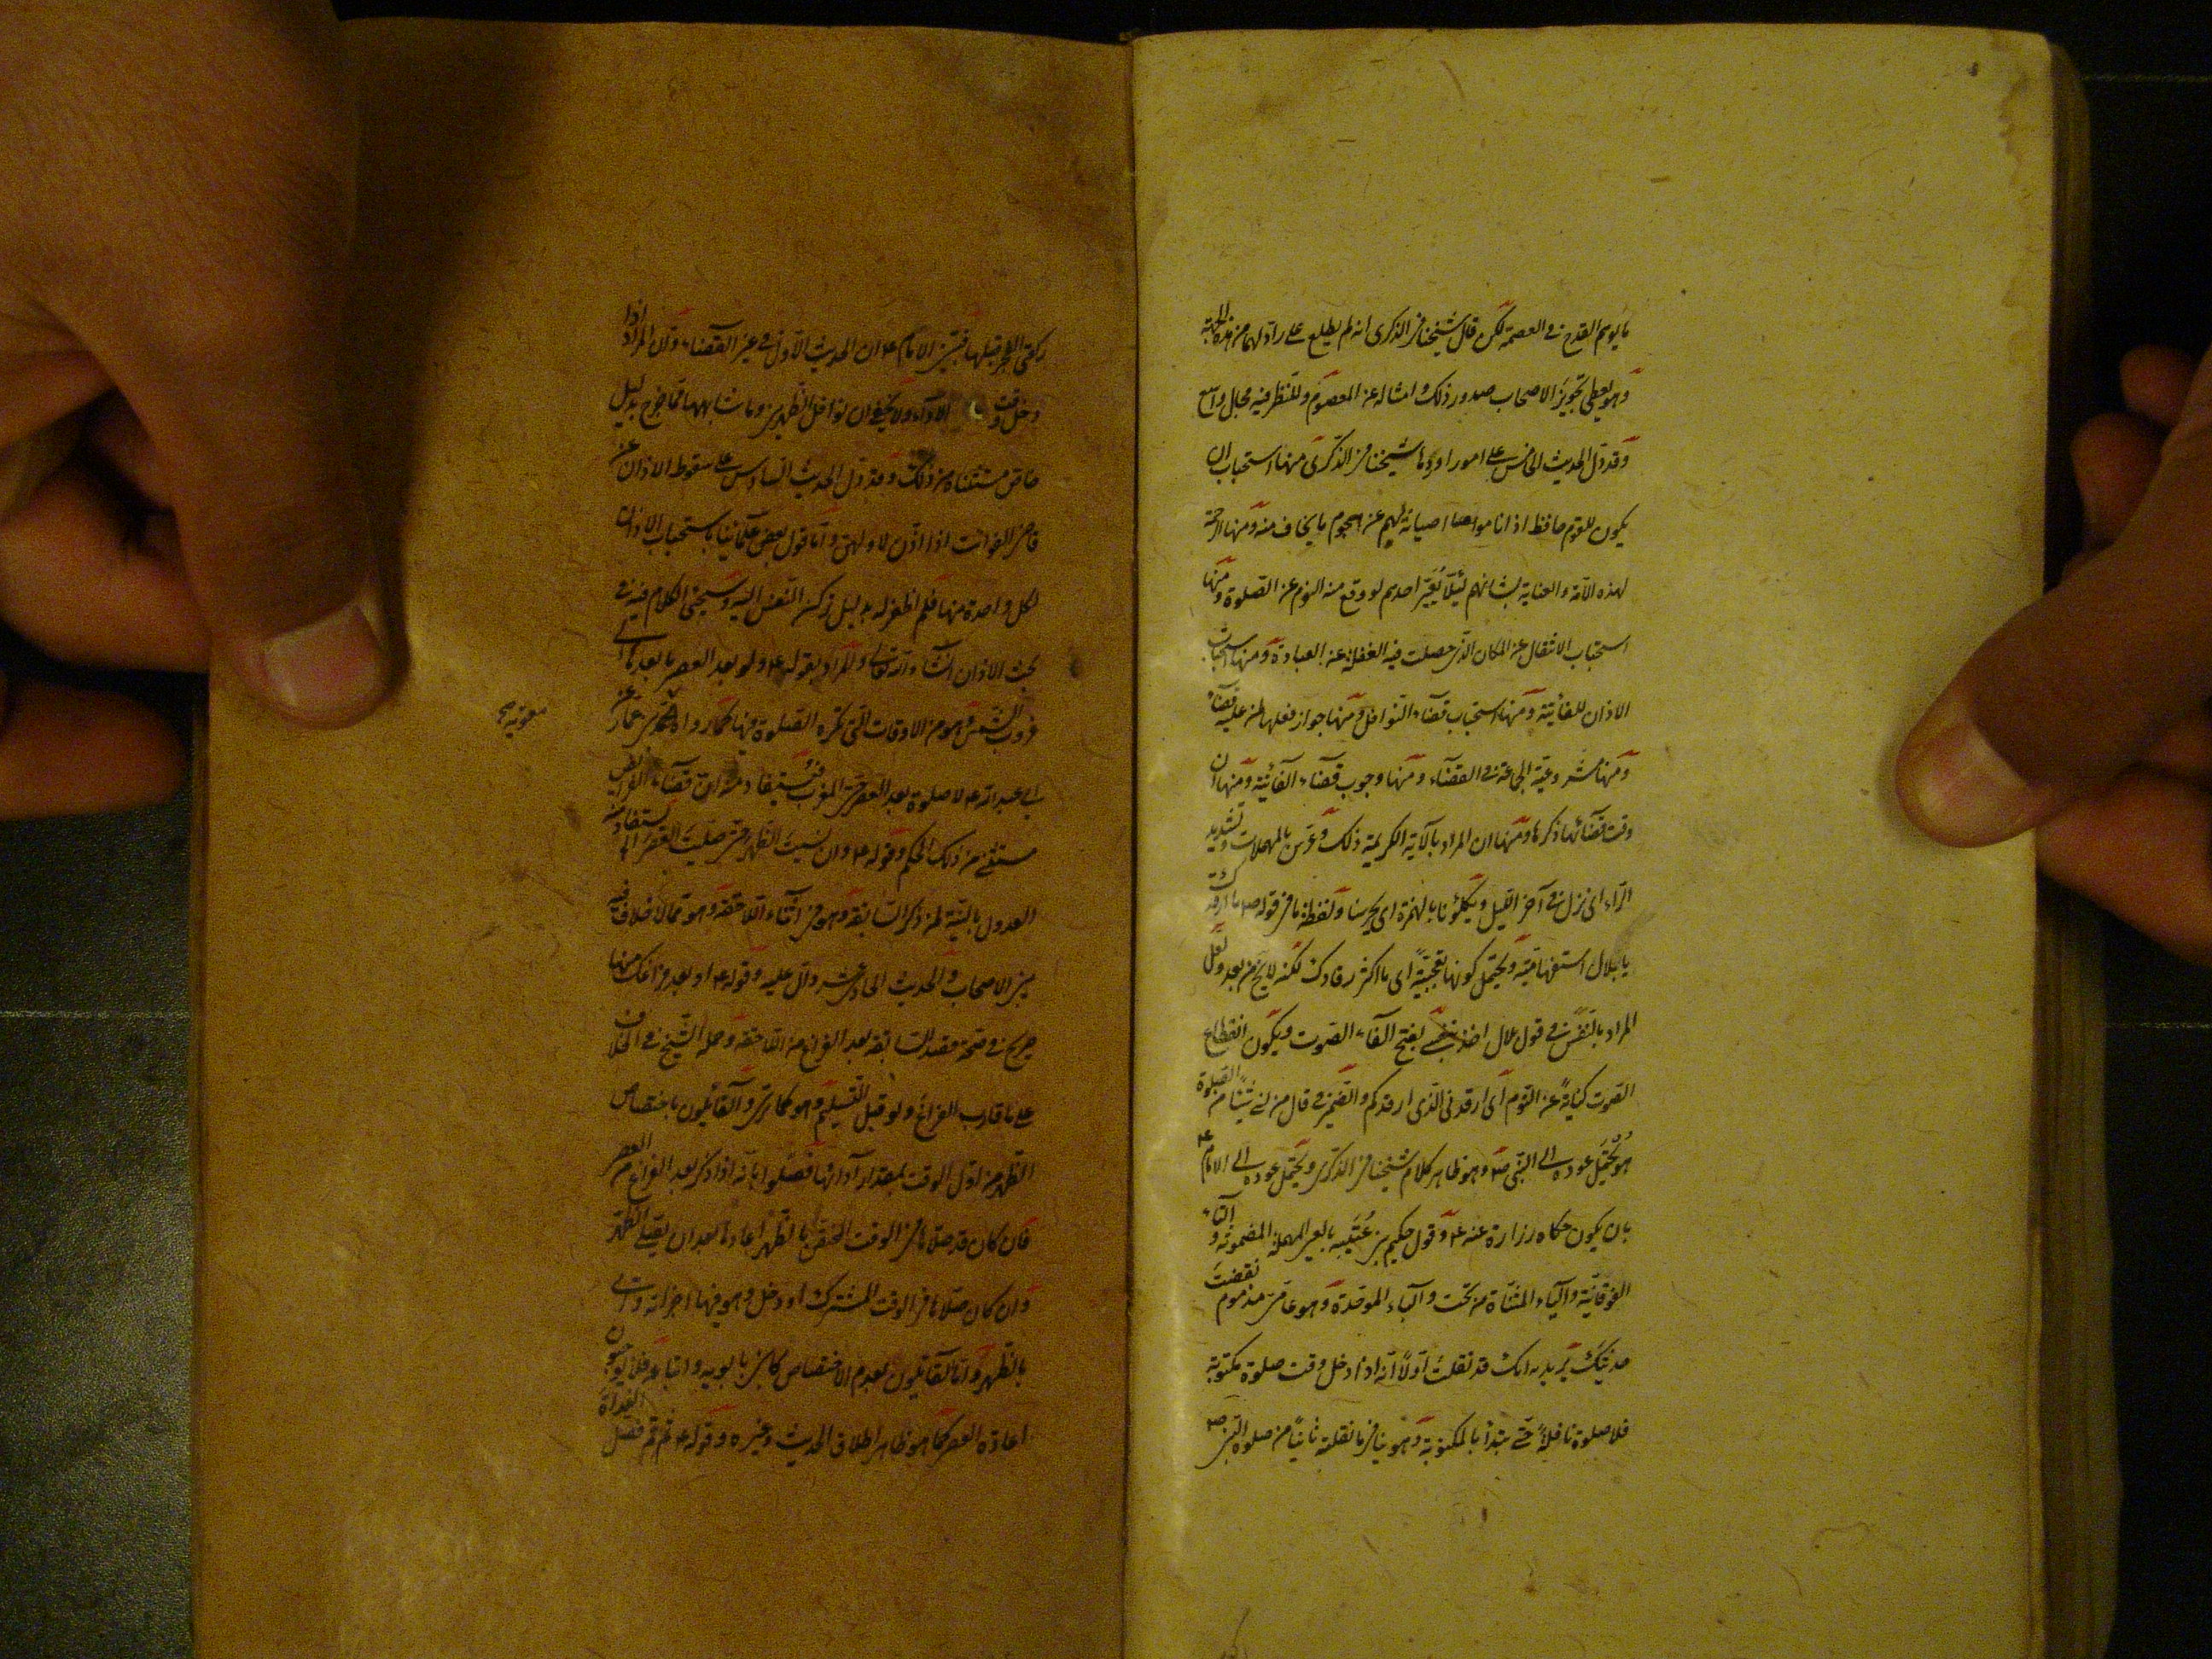 ما يوهم القدح في العصمة لكن قال شيخنا في الذكرى انه لم يطلع على راد لهما من هذه الجهة
وهو يعطي تجويز الاصحاب صدور ذلك وامثاله عن المعصوم وللنظر فيه مجال واسع
وقد دل الحديث الخامس على امور اوردها شيخنا في الذكرى منها استحباب ان
يكون للقوم حافظ اذا ناموا صيانة لهم عن هجوم ما يخاف منه ومنها الرحمة
لهذه الامة والعناية بشانهم لئلا يعير احدهم لو وقع منه النوم عن الصلوة ومنها
استحباب الانتقال عن المكان الذي حصلت فيه الغفلة عن العبادة ومنها استحباب
الاذان للفائتة ومنها استحباب قضاء النوافل ومنها جواز فعلها لمن عليه قضاء
ومنها مشروعية الجماعة في القضاء ومنها وجوب قضاء الفائتة ومنها ان
وقت قضائها ذكرها ومنها ان المراد بالآية الكريمة ذلك وعرس بالمهملات وتشديد
الراء اي نزل في آخر الليل ويكلؤنا بالهمزة اي يحرسنا ولفظة ما في قوله ص ما ارقدك
يا بلال استفهامية ويحتمل كونها تعجبية اي ما اكثر رقادك لكنه لا يخ من بعد ولعل
المراد بالنفس في قول بلال اخذ بنفسي بفتح الفاء الصوت ويكون انقطاع
الصوت كناية عن النوم اي ارقدني الذي ارقدكم والضمير في قال من نسي شيئا من الصلوة
هو يحتمل عوده الى النبي ص وهو ظاهر كلام شيخنا في الذكرى ويحتمل عوده الى الامام ع
بان يكون حكاه زرارة عنه ع وقول حكيم بن عتيبه بالعين المهملة المضمومة والتاء
الفوقانية والياء المثناة من تحت والباء الموحدة وهو عامي مذموم نقضت
حديثك يريد به انك قد نقلت اولا انه اذا دخل وقت صلوة مكتوبة
فلا صلوة نافلة حتى يبدأ بالمكتوبة وهو ينافي ما نقلته ثانيا من صلوة النبي ص
ركعتي الفجر قبلها فبين الامام ع ان الحديث الاول في غير القضاء وان المراد اذا
دخل وقت الاداء ولا يخفى ان نوافل الظهرين وما شابهها مما خرج بدليل
خاص مستثناة من ذلك وقد دل الحديث السادس على سقوط الاذان عن
قاضي الفوائت اذا اذن لاولهن واما قول بعض علمائنا باستحباب الاذان
لكل واحدة منها فلم اظفر له بدليل تركن النفس اليه وسيجئ الكلام فيه في
بحث الاذان انشاء الله تعالى والمراد بقوله ع ولو بعد العصر ما بعدها الى
غروب الشمس وهو من الاوقات التي تكره الصلوة فيها كما رواه محمد بن عمار عن
معوية صح
ابي عبد الله ع لا صلوة بعد العصر حتى المغرب فيستفاد منه ان قضاء الفرايض
مستثنى من ذلك الحكم وقوله ع وان نسيت الظهر حتى صليت العصر الخ يستفاد منه
العدول بالنية لمن ذكر السابقة وهو في اثناء اللاحقة وهو مما لا خلاف فيه
بين الاصحاب والحديث الحادي عشر دال عليه وقوله ع او بعد فراغك منها
صريح في صحة قصد السابقة بعد الفراغ من اللاحقة وحمله الشيخ في الخلاف
على ما قارب الفراغ ولو قبل التسليم وهو كما ترى والقائلون باختصاص
الظهر من اول الوقت بمقدار ادائها فصلوا بانه اذا ذكر بعد الفراغ من العصر
فان كان قد صلاها في الوقت المختص بالظهر اعادها بعد ان يصلي الظهر
وان كان صلاها في الوقت المشترك او دخل وهو فيها اجزأته واتى
بالظهر واما القائلون بعدم الاختصاص كابن بابويه واتباعه فلا يوجبون
اعادة العصر كما هو ظاهر اطلاق الحديث وغيره وقوله ع ثم قم فصل الغداة